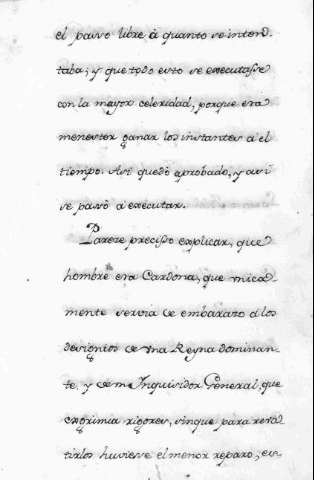 el passo libre à quanto se inten-
taba; y que todo esto se executasse
con la mayor celeridad, porque era
menester ganar los instantes a el
tiempo. Asi quedò aprobado, y asi
se passò a executar.
Parece preciso explicar, que
hombre era Cardona, que unica-
mente servia de embarazo a los
designios de una Reyna dominan-
te, y de un Inquisidor General, que
exprimia rigores, sin que para
huviesse el menor reparo; es-